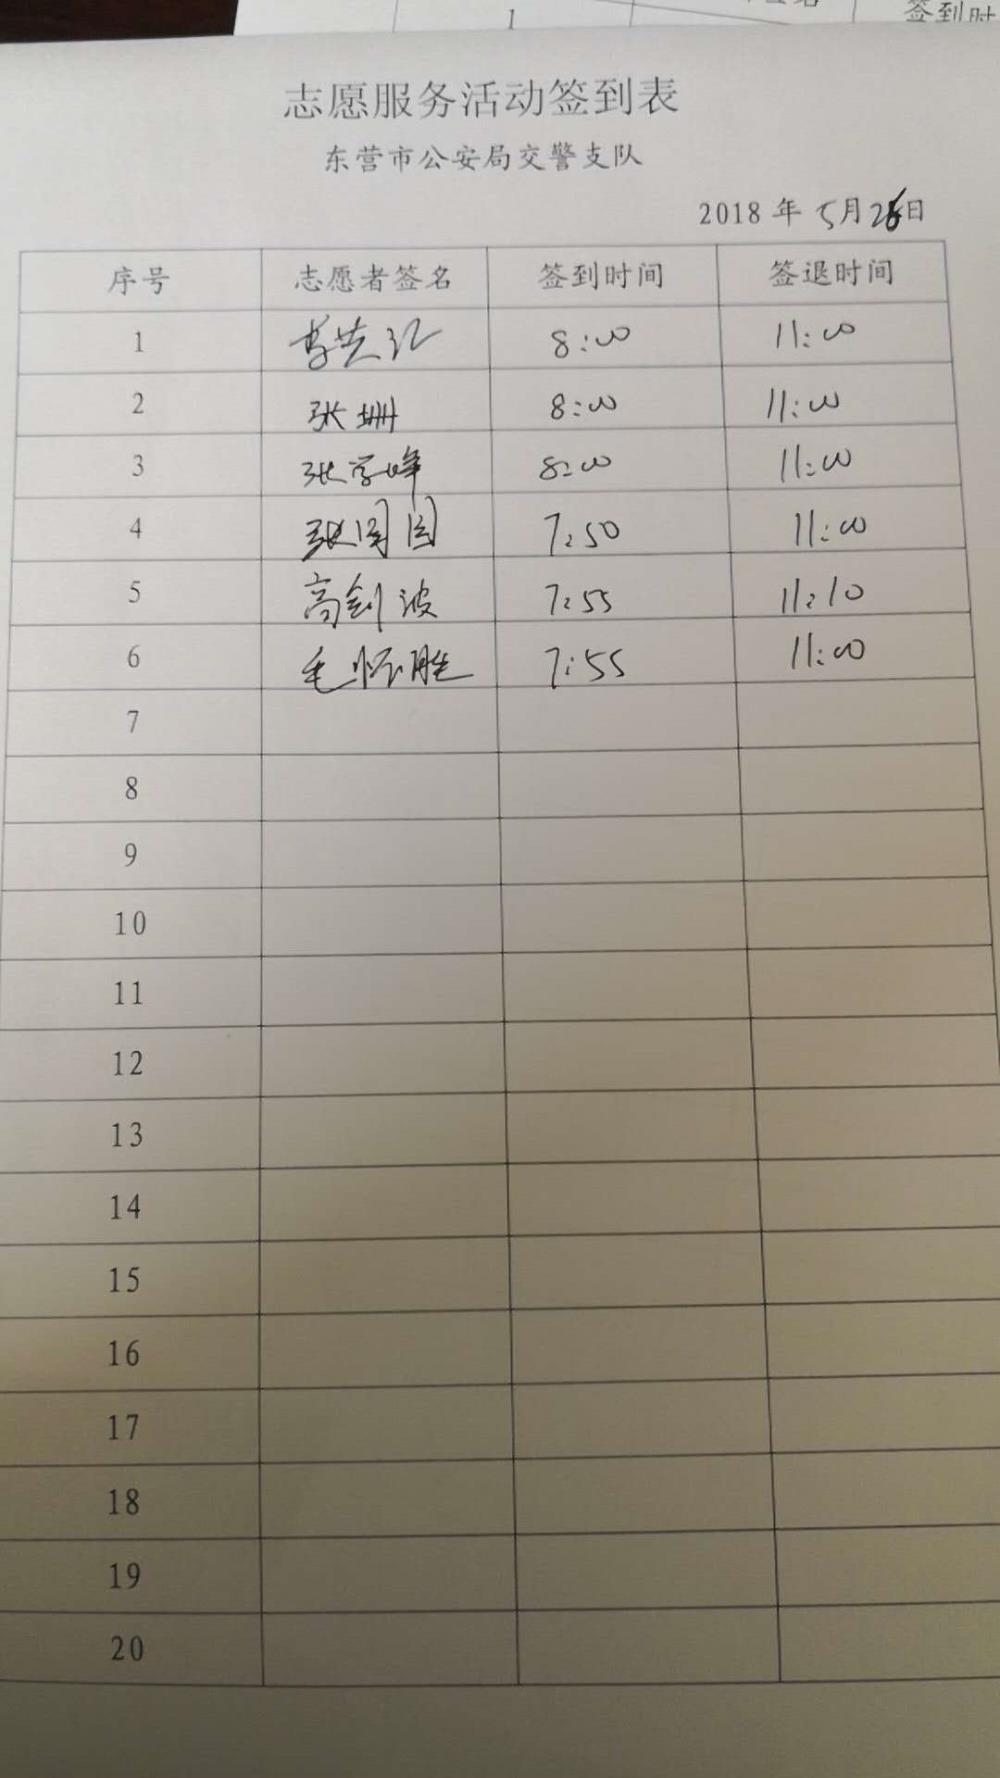 1
签到时
志愿服务活动签到表
东营市公安局交警支队
2018 年 5月26日
序号 志愿者签名 签到时间 签退时间
1 8:00 11:00
2 张珊 8:00 11:00
3 张学峰 8:00 11:00
4 张团团 7:50 11:00
5 高剑波 7:55 11:10
6 毛怀胜 7:55 11:00
7
8
9
10
11
12
13
14
15
16
17
18
19
20